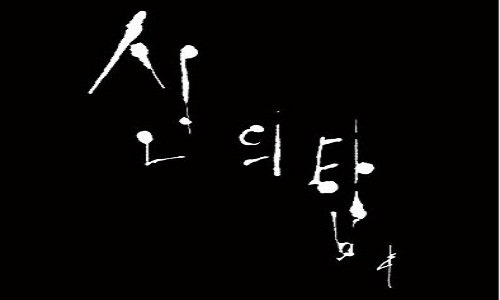 신의탑